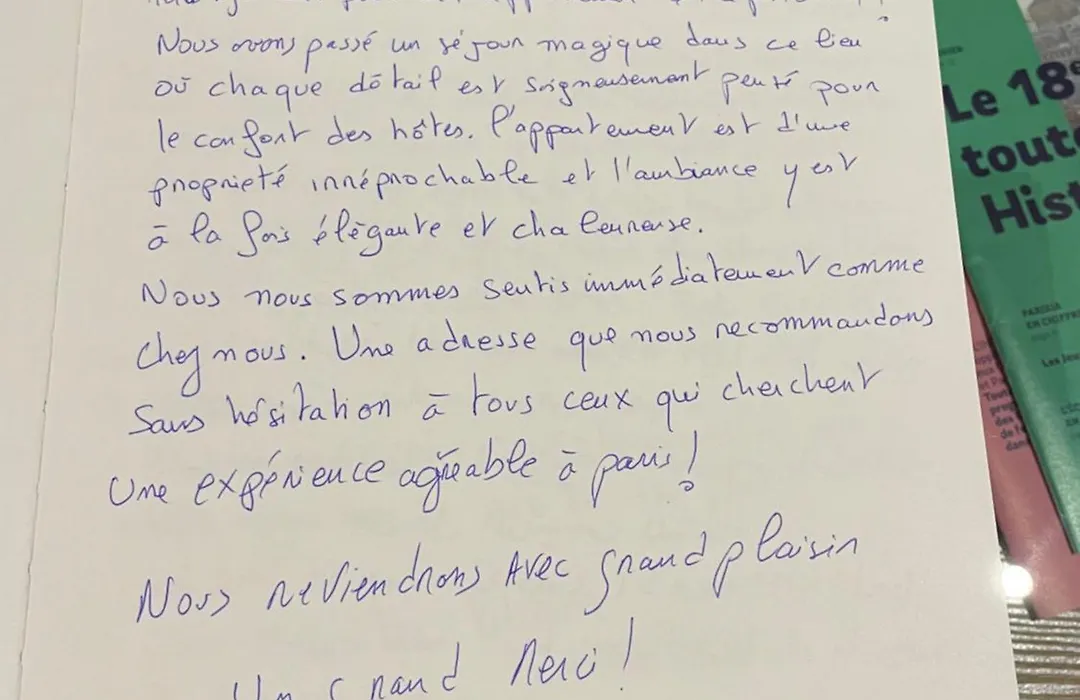 Nous avons passé un séjour magique dans ce lieu
où chaque détail est soigneusement pensé pour
le confort des hôtes. l'appartement est d'une
propreté irréprochable et l'ambiance y est
à la fois élégante et chaleureuse.
Nous nous sommes sentis immédiatement comme
chez nous. Une adresse que nous recommandons
Sans hésitation à tous ceux qui cherchent
Une expérience agréable à paris!
Nous reviendrons Avec grand plaisir
Un grand Merci!
Le 18e
toute
Hist
PARIS
EN CHIFFRE
Les Jeu